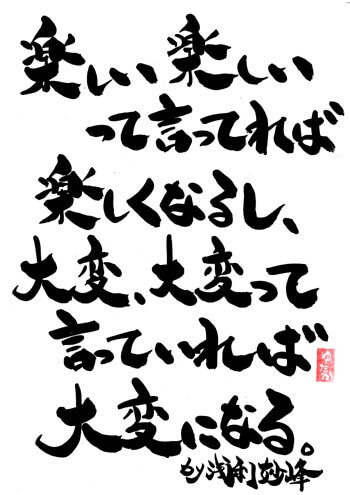 楽しい 楽しい
って言ってれば
楽しくなるし、
大変、大変って
言っていれば
大変になる。
by 浅利妙峰
ゆたか